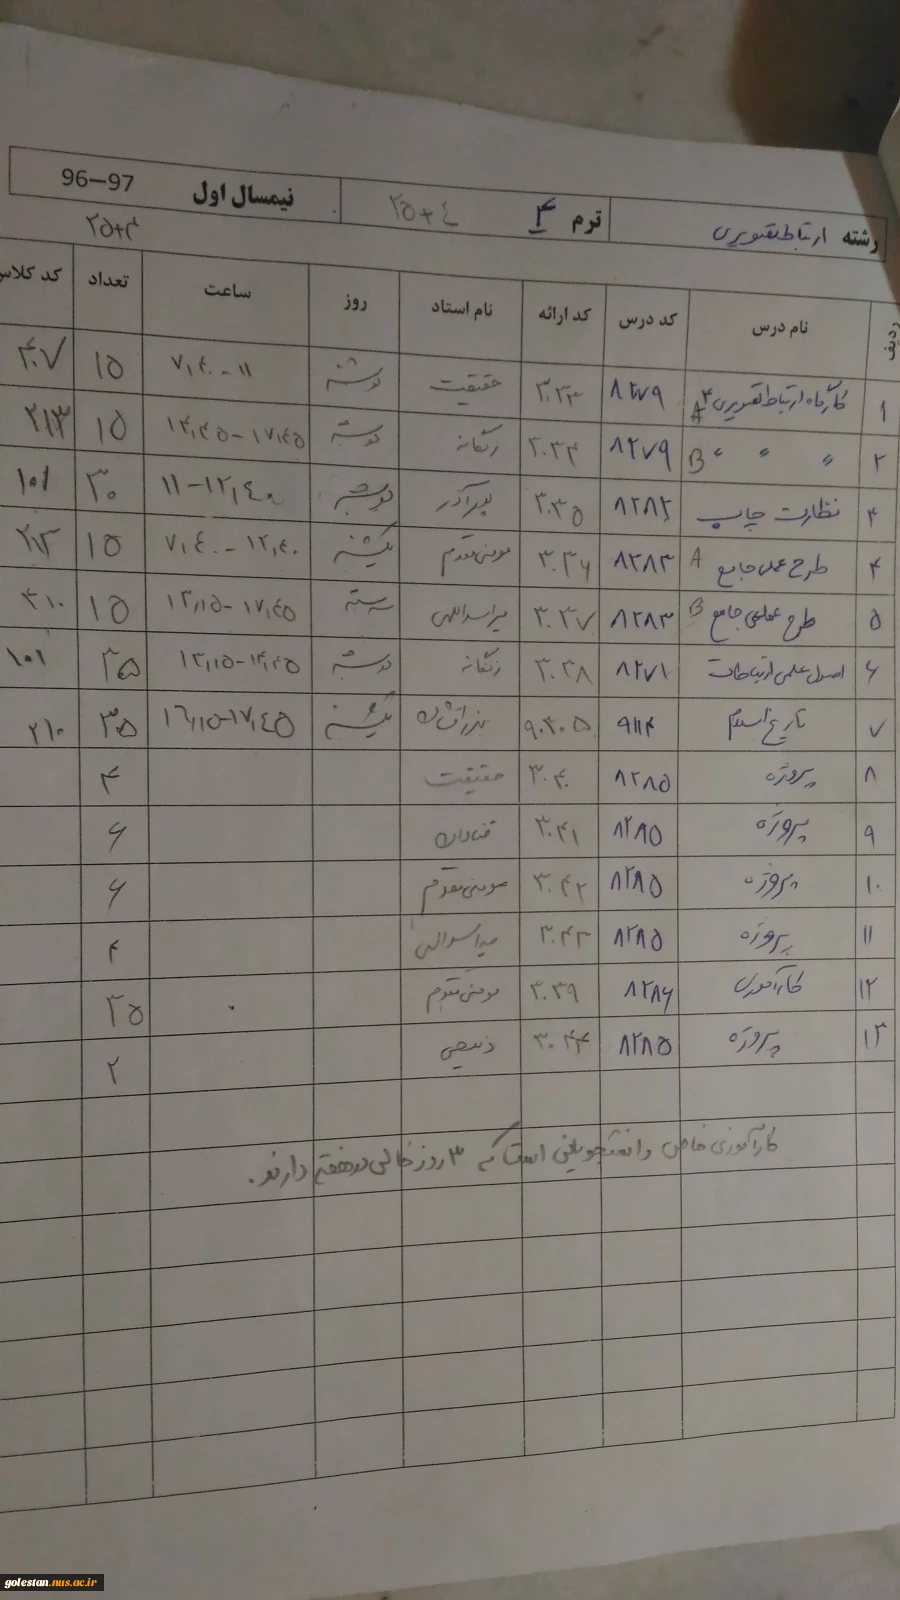 رشته ارتباط تصویری ترم ۴ ۲۵+٤ نیمسال اول 96–97
۲۵+۴
ردیف نام درس کد درس کد ارائه نام استاد روز ساعت تعداد کد کلاس
۱ کارگاه ارتباط تصویری ۴ A ۸۲۷۹ ۳۰۳۳ حقیقت دوشنبه ۷,۴۰ - ۱۱ ۱۵ ۴۰۷
۲ " " " B ۸۲۷۹ ۳۰۳۴ زنگانه دوشنبه ۱۴,۴۵ - ۱۷,۴۵ ۱۵ ۲۱۳
۳ نظارت چاپ ۸۲۸۲ ۳۰۳۵ پورآذر دوشنبه ۱۱ - ۱۲,۴۰ ۳۰ ۱۰۱
۴ طرح عملی جامع A ۸۲۸۳ ۳۰۳۶ مومنی مقدم یکشنبه ۷,۴۰ - ۱۲,۴۰ ۱۵ ۲۱۳
۵ طرح عملی جامع B ۸۲۸۳ ۳۰۳۷ میراسداللهی سه شنبه ۱۳,۱۵ - ۱۷,۴۵ ۱۵ ۴۱۰
۶ اصول علمی ارتباطات ۸۲۷۱ ۳۰۳۸ زنگانه دوشنبه ۱۳,۱۵ - ۱۴,۴۵ ۳۵ ۱۰۱
۷ تاریخ اسلام ۹۱۱۴ ۹۰۳۰۵ یکشنبه ۱۶,۱۵ - ۱۷,۴۵ ۳۵ ۲۱۰
۸ پروژه ۸۲۸۵ ۳۰۴۰ حقیقت ۴
۹ پروژه ۸۲۸۵ ۳۰۴۱ ۶
۱۰ پروژه ۸۲۸۵ ۳۰۴۲ مومنی مقدم ۶
۱۱ پروژه ۸۲۸۵ ۳۰۴۳ میراسداللهی ۴
۱۲ کارآموزی ۸۲۸۶ ۳۰۳۹ مومنی مقدم ۲۵
۱۳ پروژه ۸۲۸۵ ۳۰۴۴ ذبیحی ۲
کارآموزی خاص دانشجویانی است که ۳ روز خالی در هفته دارند.
golestan.nus.ac.ir